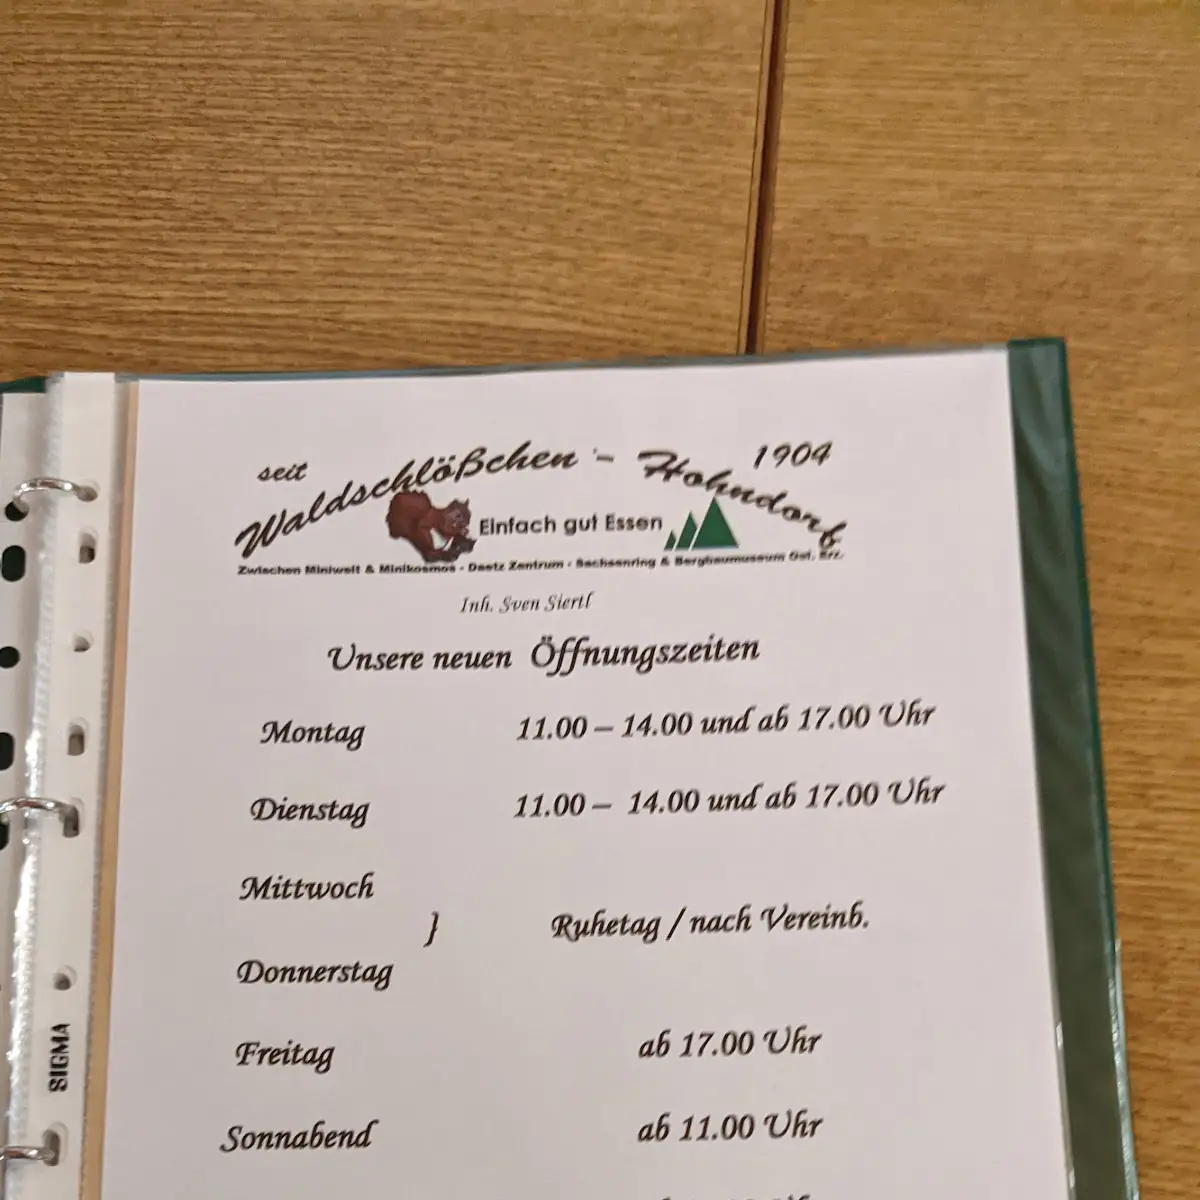 seit 1904
Waldschlößchen - Hohndorf
Einfach gut Essen
Zwischen Miniwelt & Minikosmos - Daetz Zentrum - Sachsenring & Bergbaumuseum Oel. Erz.
Inh. Sven Siertl
Unsere neuen Öffnungszeiten
Montag 11.00 – 14.00 und ab 17.00 Uhr
Dienstag 11.00 – 14.00 und ab 17.00 Uhr
Mittwoch
} Ruhetag / nach Vereinb.
Donnerstag
Freitag ab 17.00 Uhr
Sonnabend ab 11.00 Uhr
SIGMA